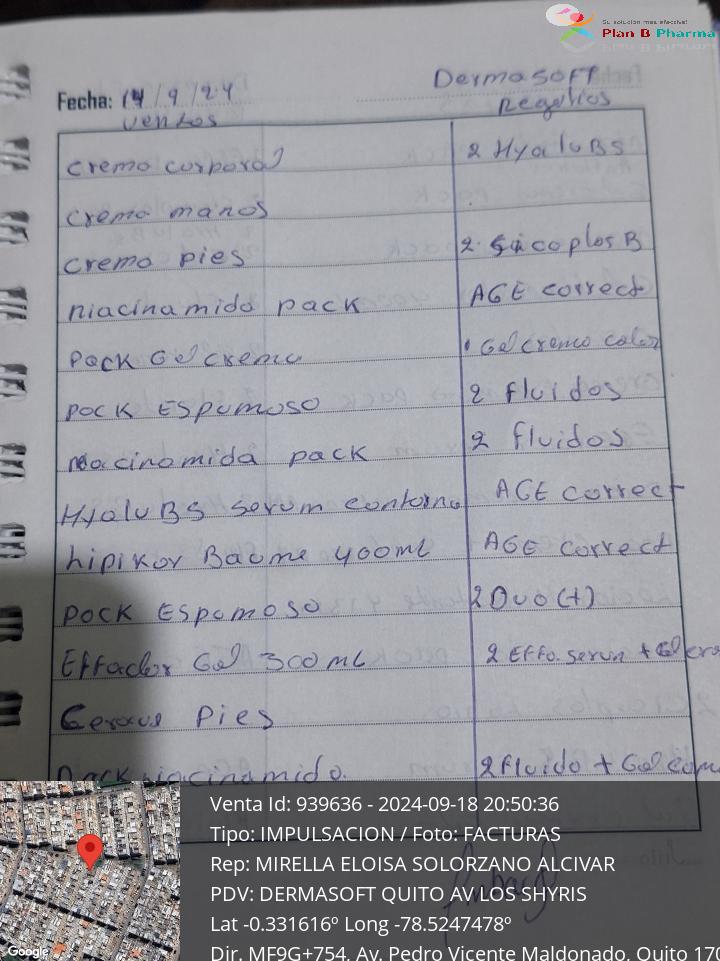 Su solución mas efectiva!
Plan B Pharma
DermaSoft
Fecha: 14/9/24
Regalios
ventas
crema corporal 2 HyaluBS
crema manos
crema pies 2 cicoplas B
niacinamida pack AGE correct
Pack Gel crema 1 Gel crema color
pack ESpumoso 2 fluidos
niacinamida pack 2 fluidos
HyaluBS serum contorno AGE correct
lipikar Baume 400ml AGE correct
pack Espumoso 2 Duo (+)
Effaclar Gel 300 ML 2 Effa. serum + Gel
Cerave Pies
Pack niacinamida. 2 fluido + Gel
Venta Id: 939636 - 2024-09-18 20:50:36
Tipo: IMPULSACION / Foto: FACTURAS
Rep: MIRELLA ELOISA SOLORZANO ALCIVAR
PDV: DERMASOFT QUITO AV LOS SHYRIS
Lat -0.331616º Long -78.5247478º
Dir. MF9G+754, Av. Pedro Vicente Maldonado, Quito 170
Google